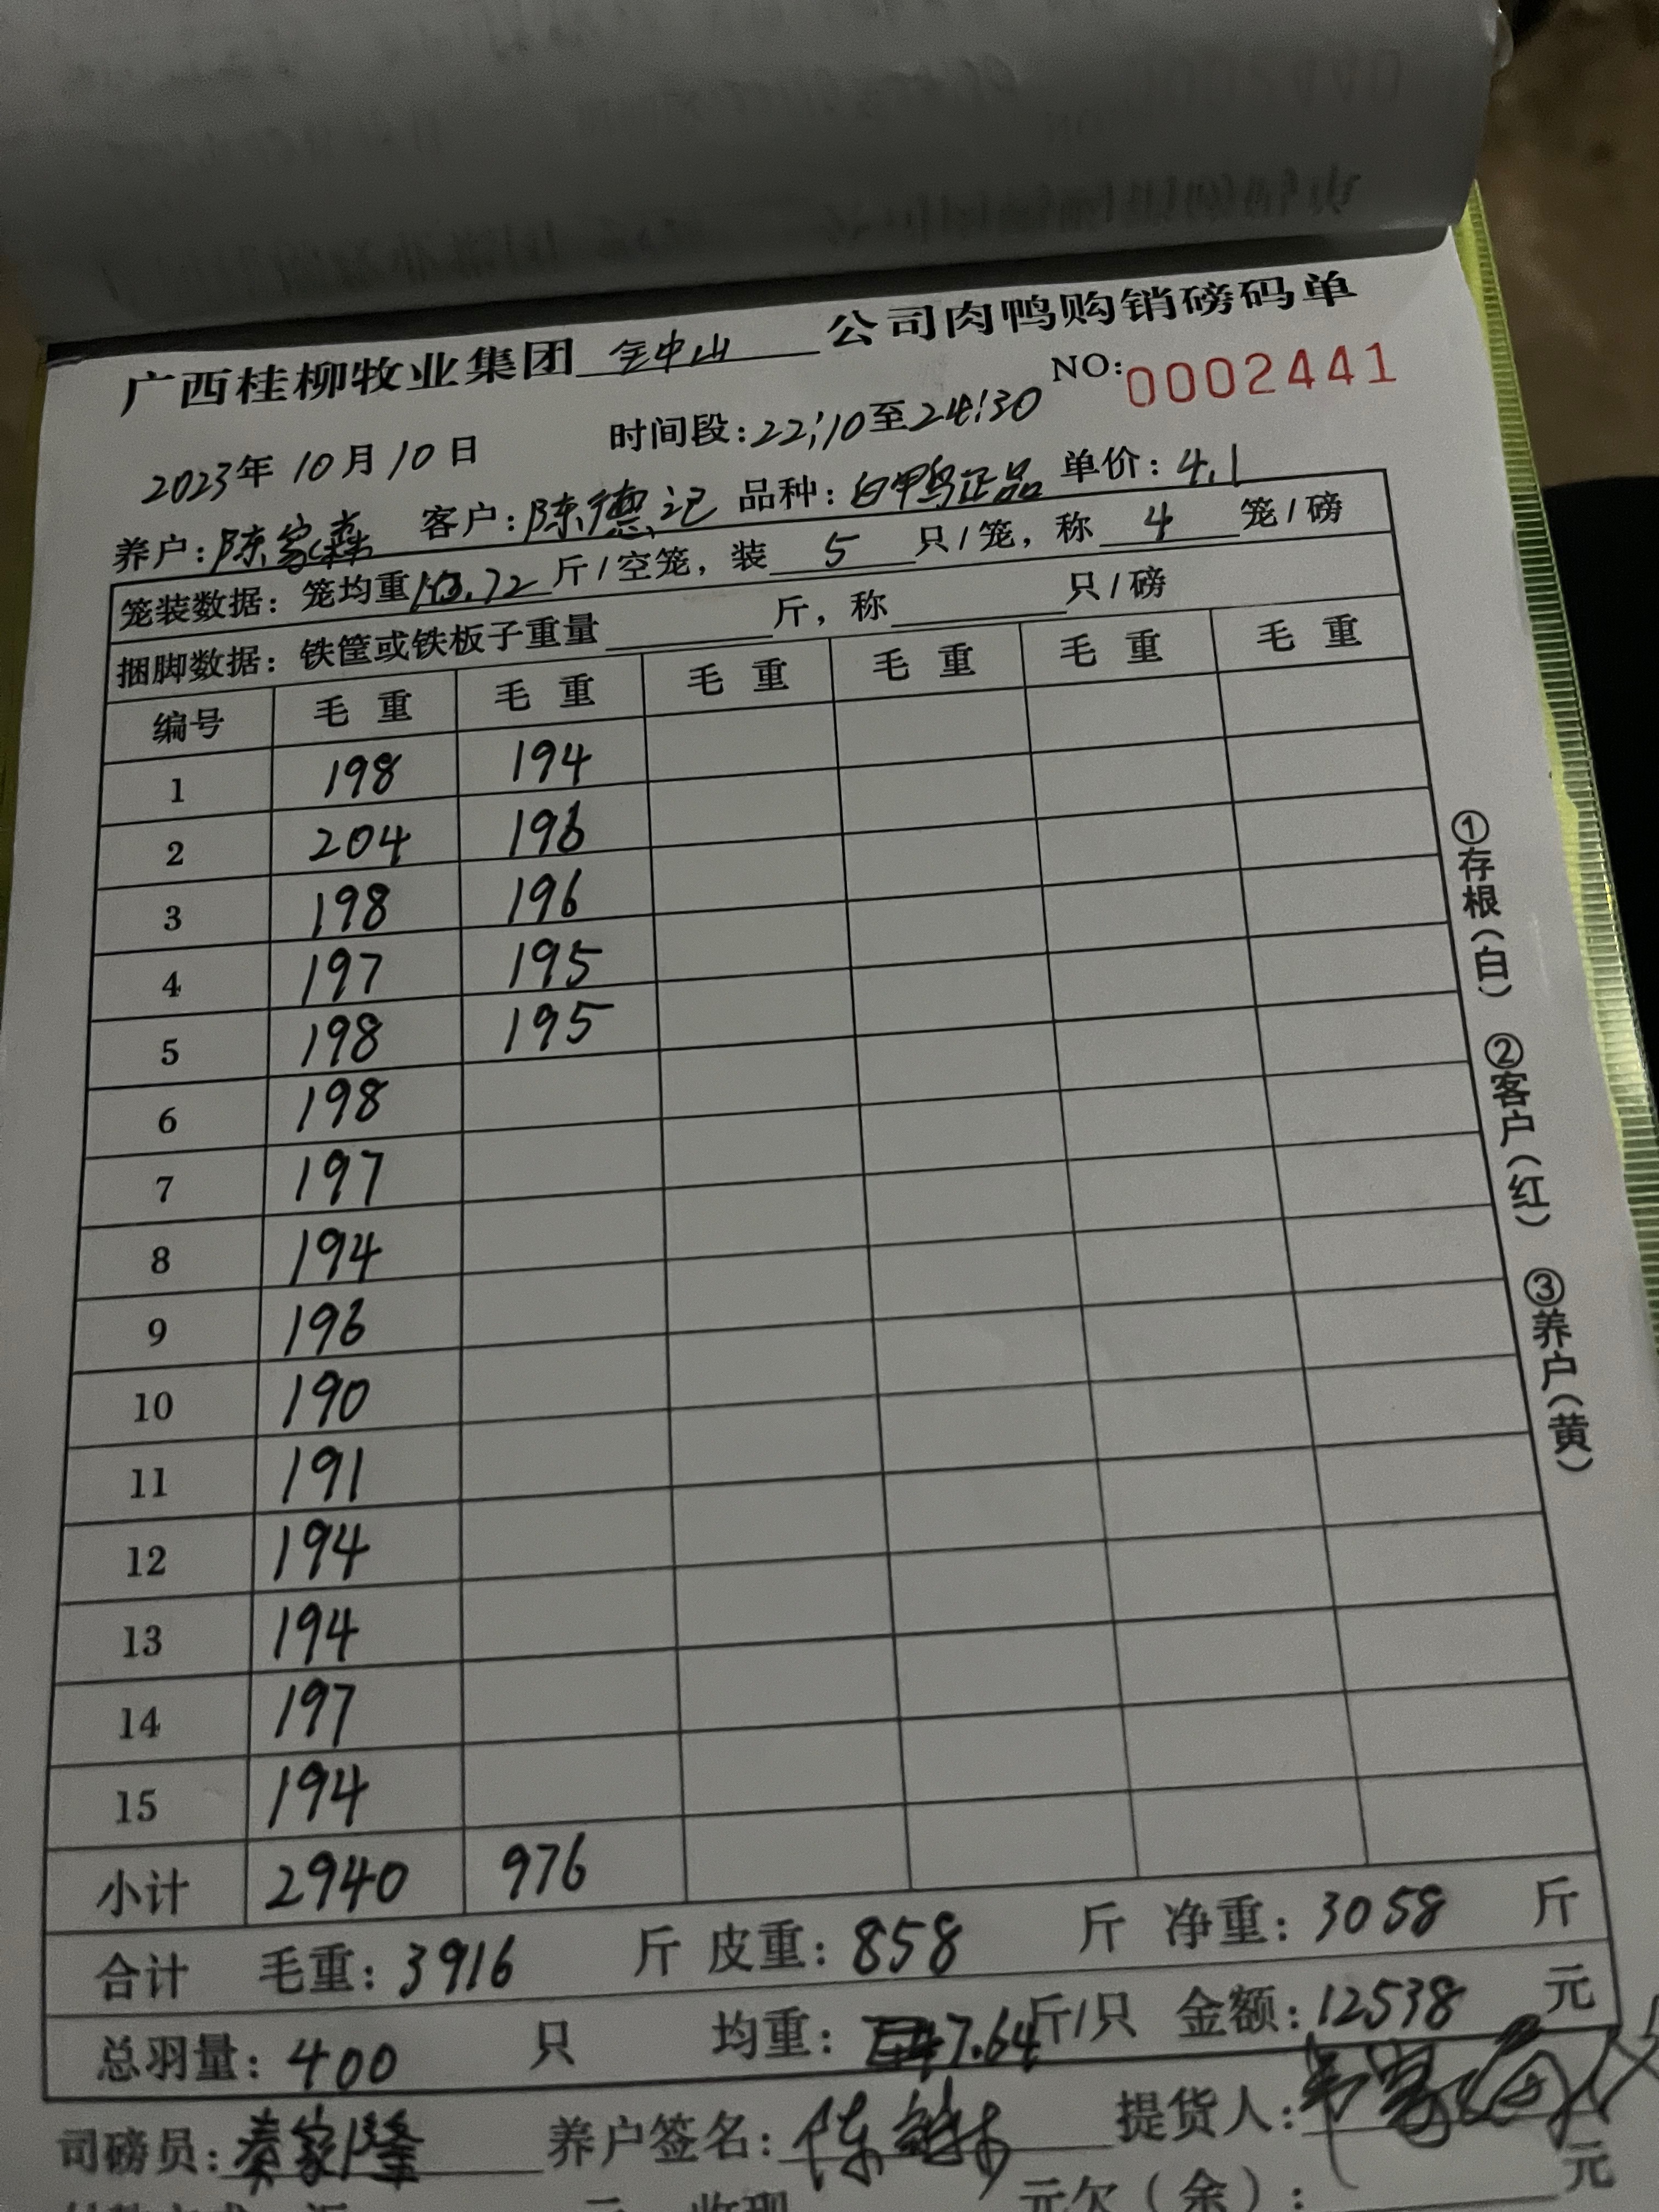 广西桂柳牧业集团 全中山 公司肉鸭购销磅码单
NO: 0002441
2023年10月10日 时间段:22:10至24:30
养户:陈家森 客户:陈德记 品种:白鸭正品 单价:4.1
笼装数据:笼均重 10.72 斤/空笼,装 5 只/笼,称 4 笼/磅
捆脚数据:铁筐或铁板子重量 斤,称 只/磅
编号 毛重 毛重 毛重 毛重 毛重 毛重
1 198 194
2 204 196
3 198 196
4 197 195
5 198 195
6 198
7 197
8 194
9 196
10 190
11 191
12 194
13 194
14 197
15 194
小计 2940 976
合计 毛重:3916 斤 皮重:858 斤 净重:3058 斤
总羽量:400 只 均重:7.64斤/只 金额:12538 元
司磅员:秦家隆 养户签名: 提货人:
元 收现 元欠(余): 元
①存根(白) ②客户(红) ③养户(黄)